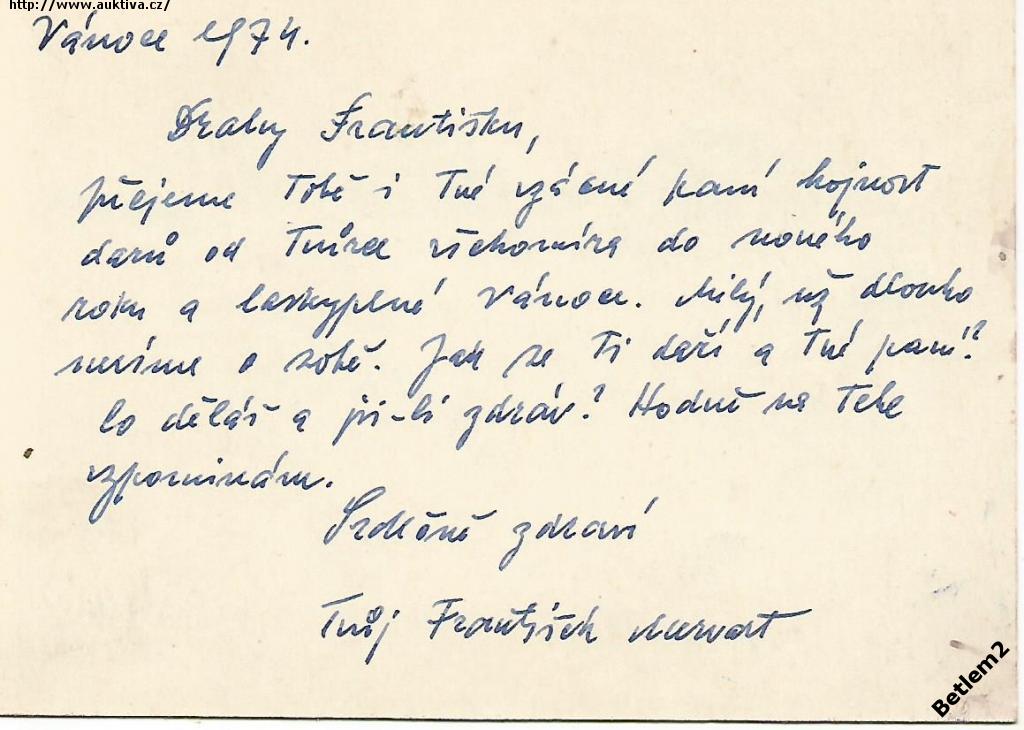 http://www.auktiva.cz/
Vánoce 1974.
Drahý Františku,
přejeme Tobě i Tvé vzácné paní hojnost
darů od Tvůrce všehomíra do nového
roku a láskyplné Vánoce. Milý, už dlouho
nevíme o sobě. Jak se Ti daří a Tvé paní?
Co děláš a jsi-li zdráv? Hodně na Tebe
vzpomínám.
Srdečně zdraví
Tvůj František
Betlem2